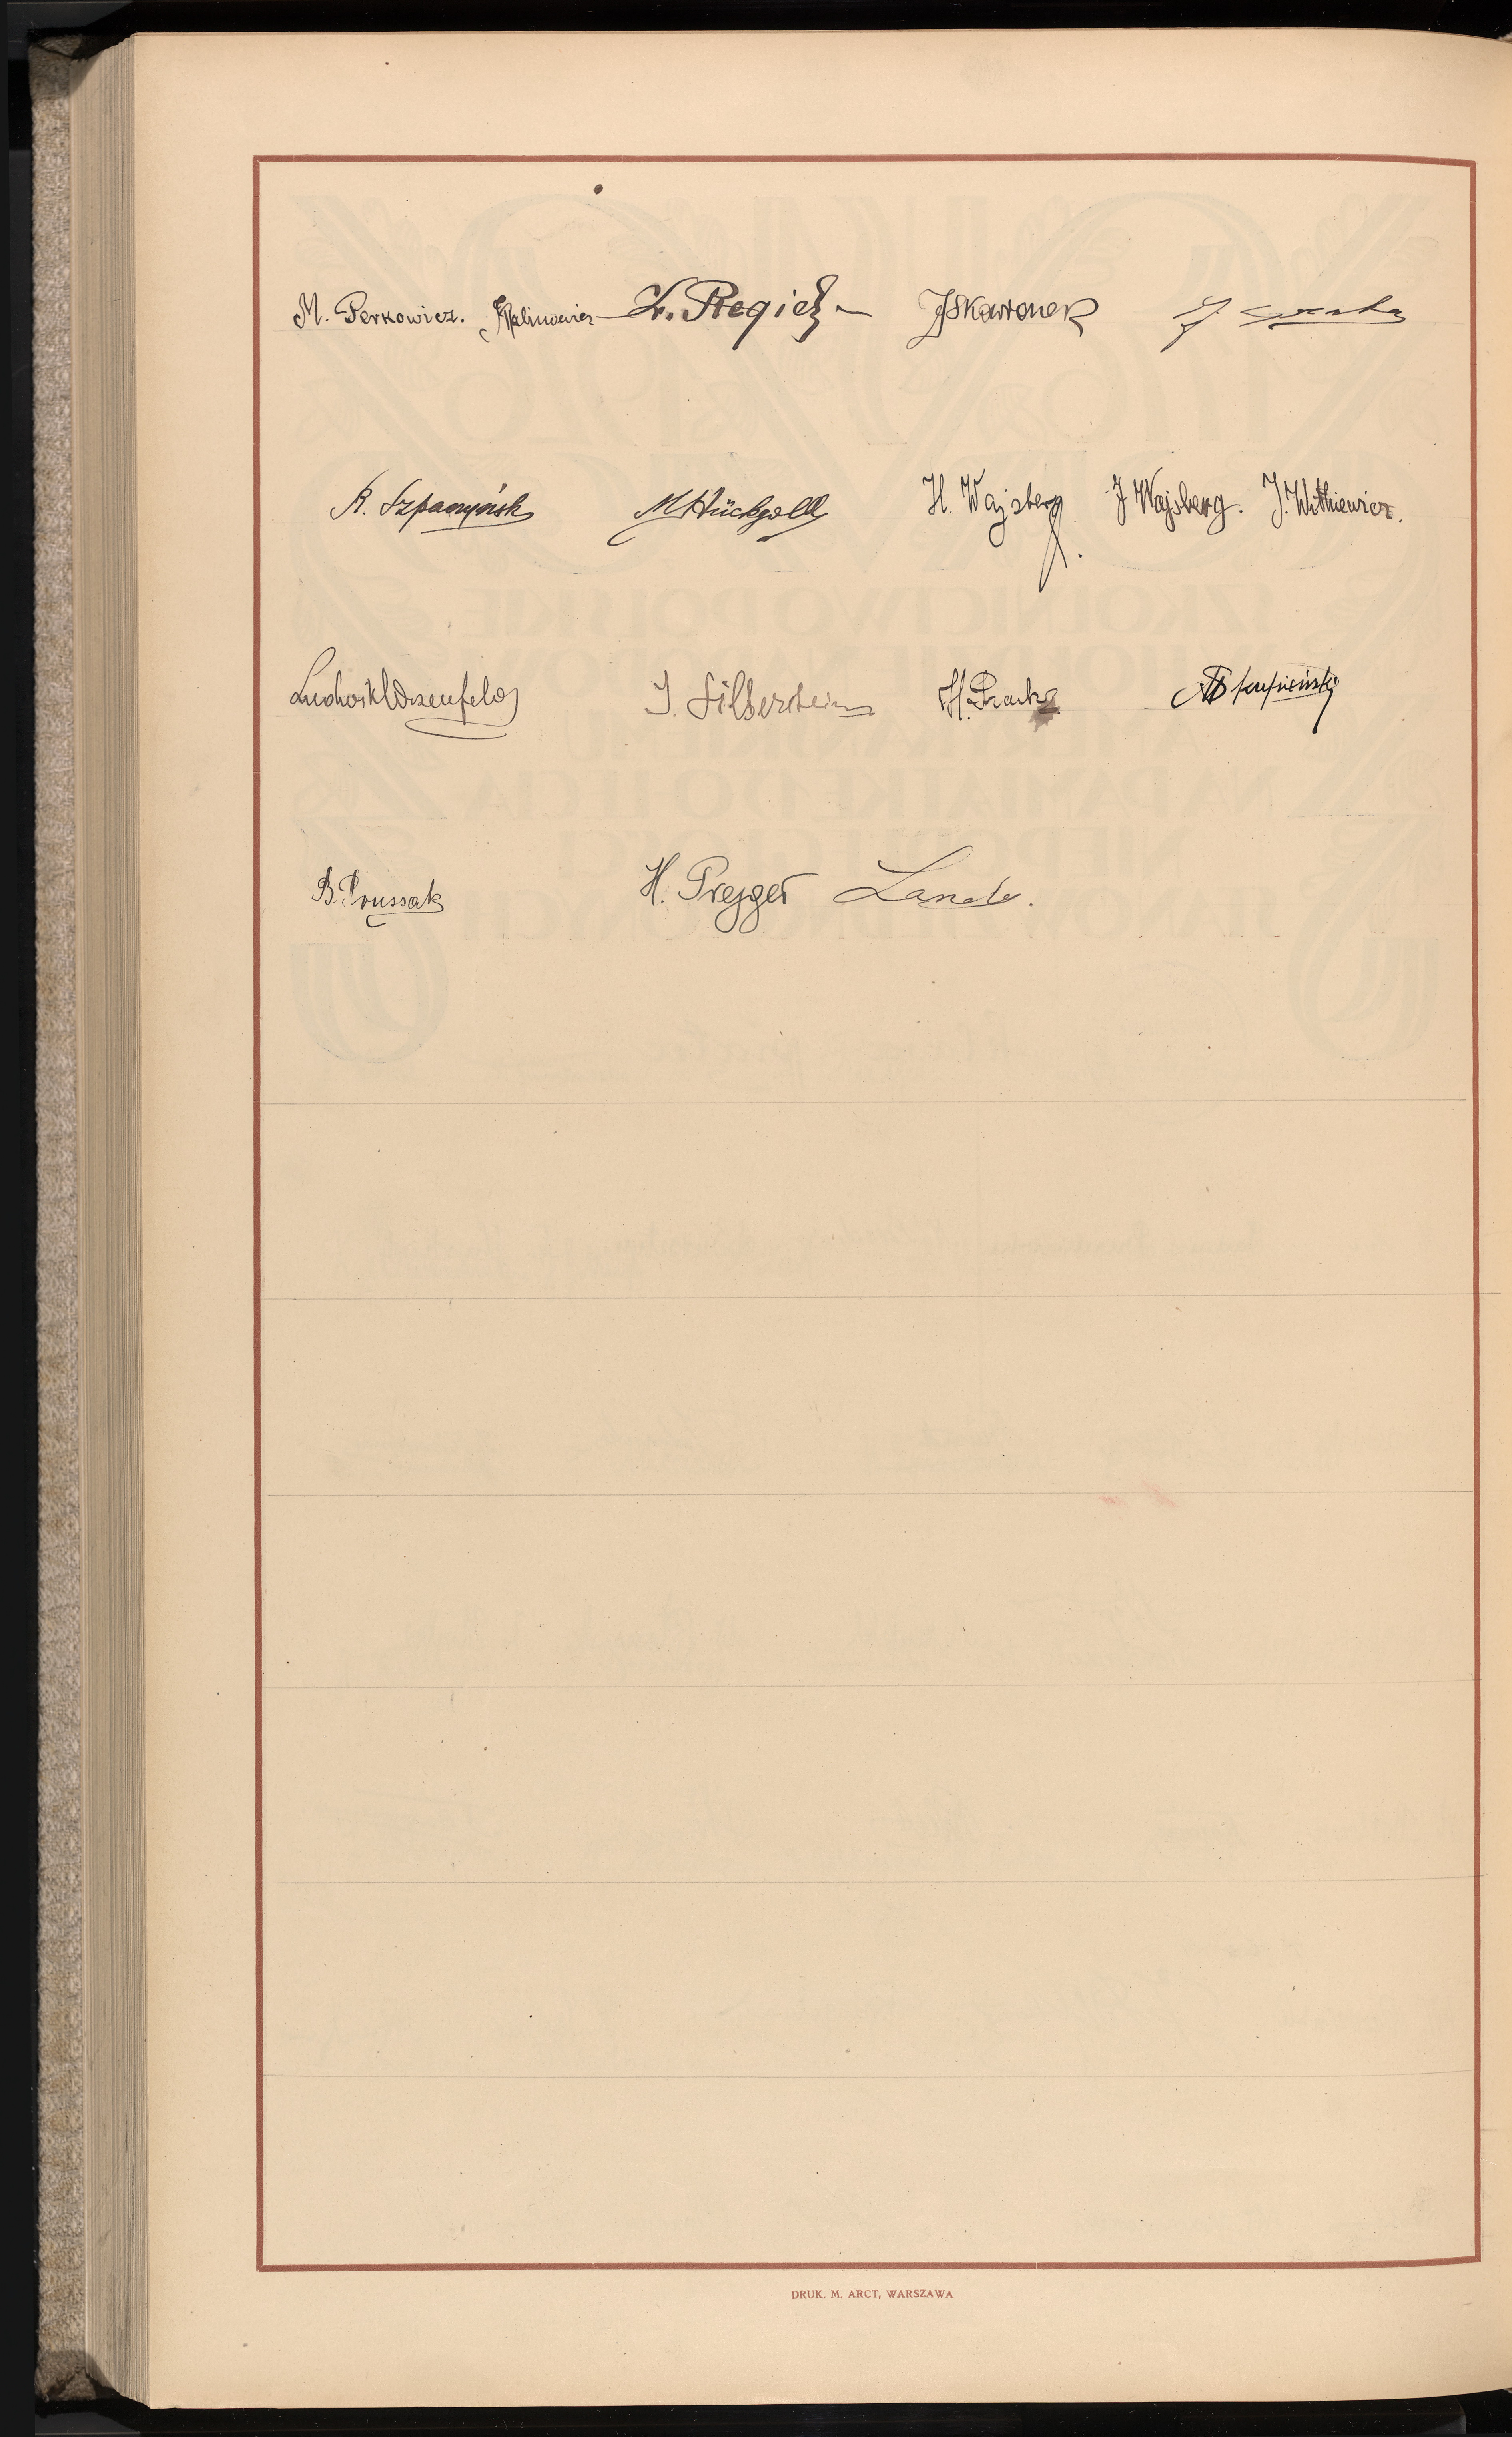 M. Perkowicz. JKalinowicz Z. Regieł JSkowronek J.
R. Szpaczyńsk M Hückgold H. Wajsberg J Wajsberg. J. Witkiewicz.
Ludwik Wdzenfeld J. Silberstein H.
B. Prussak H. Prejger Lande.
DRUK. M. ARCT, WARSZAWA